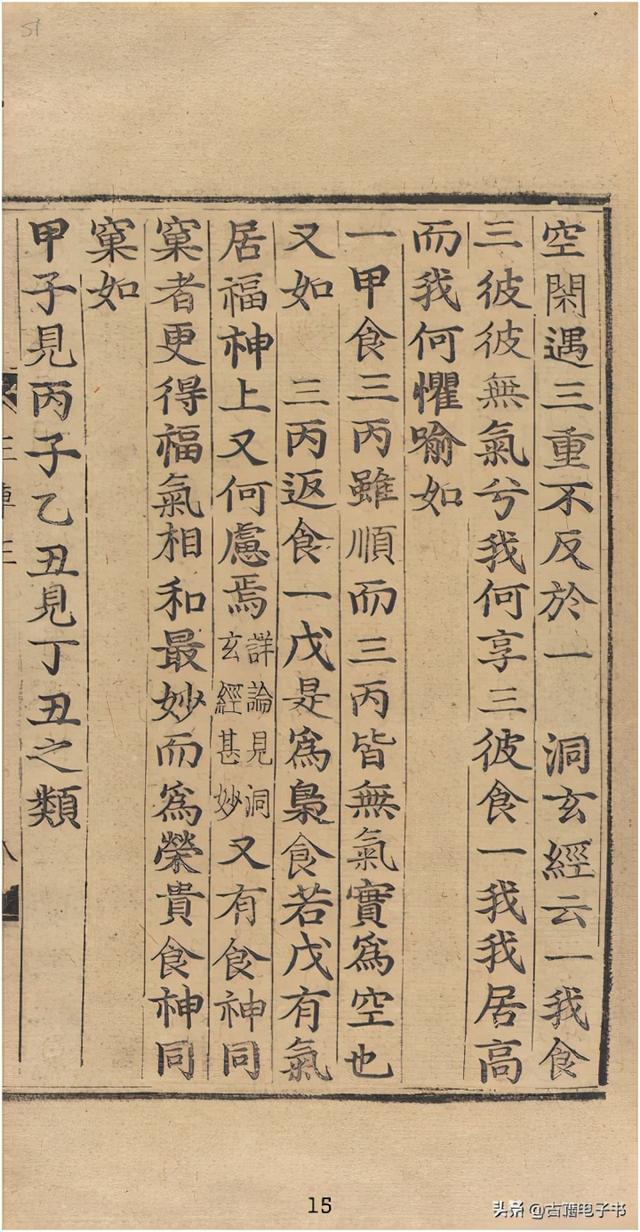 51
空閑遇三重不反於一　洞玄經云一我食
三彼彼無氣兮我何享三彼食一我我居高
而我何懼喻如
一甲食三丙雖順而三丙皆無氣實為空也
又如　三丙返食一戊是為梟食若戊有氣
居福神上又何慮焉詳論見洞玄經甚妙又有食神同
窠者更得福氣相和最妙而為榮貴食神同
窠如
甲子見丙子乙丑見丁丑之類
八
15
头条@古籍电子书